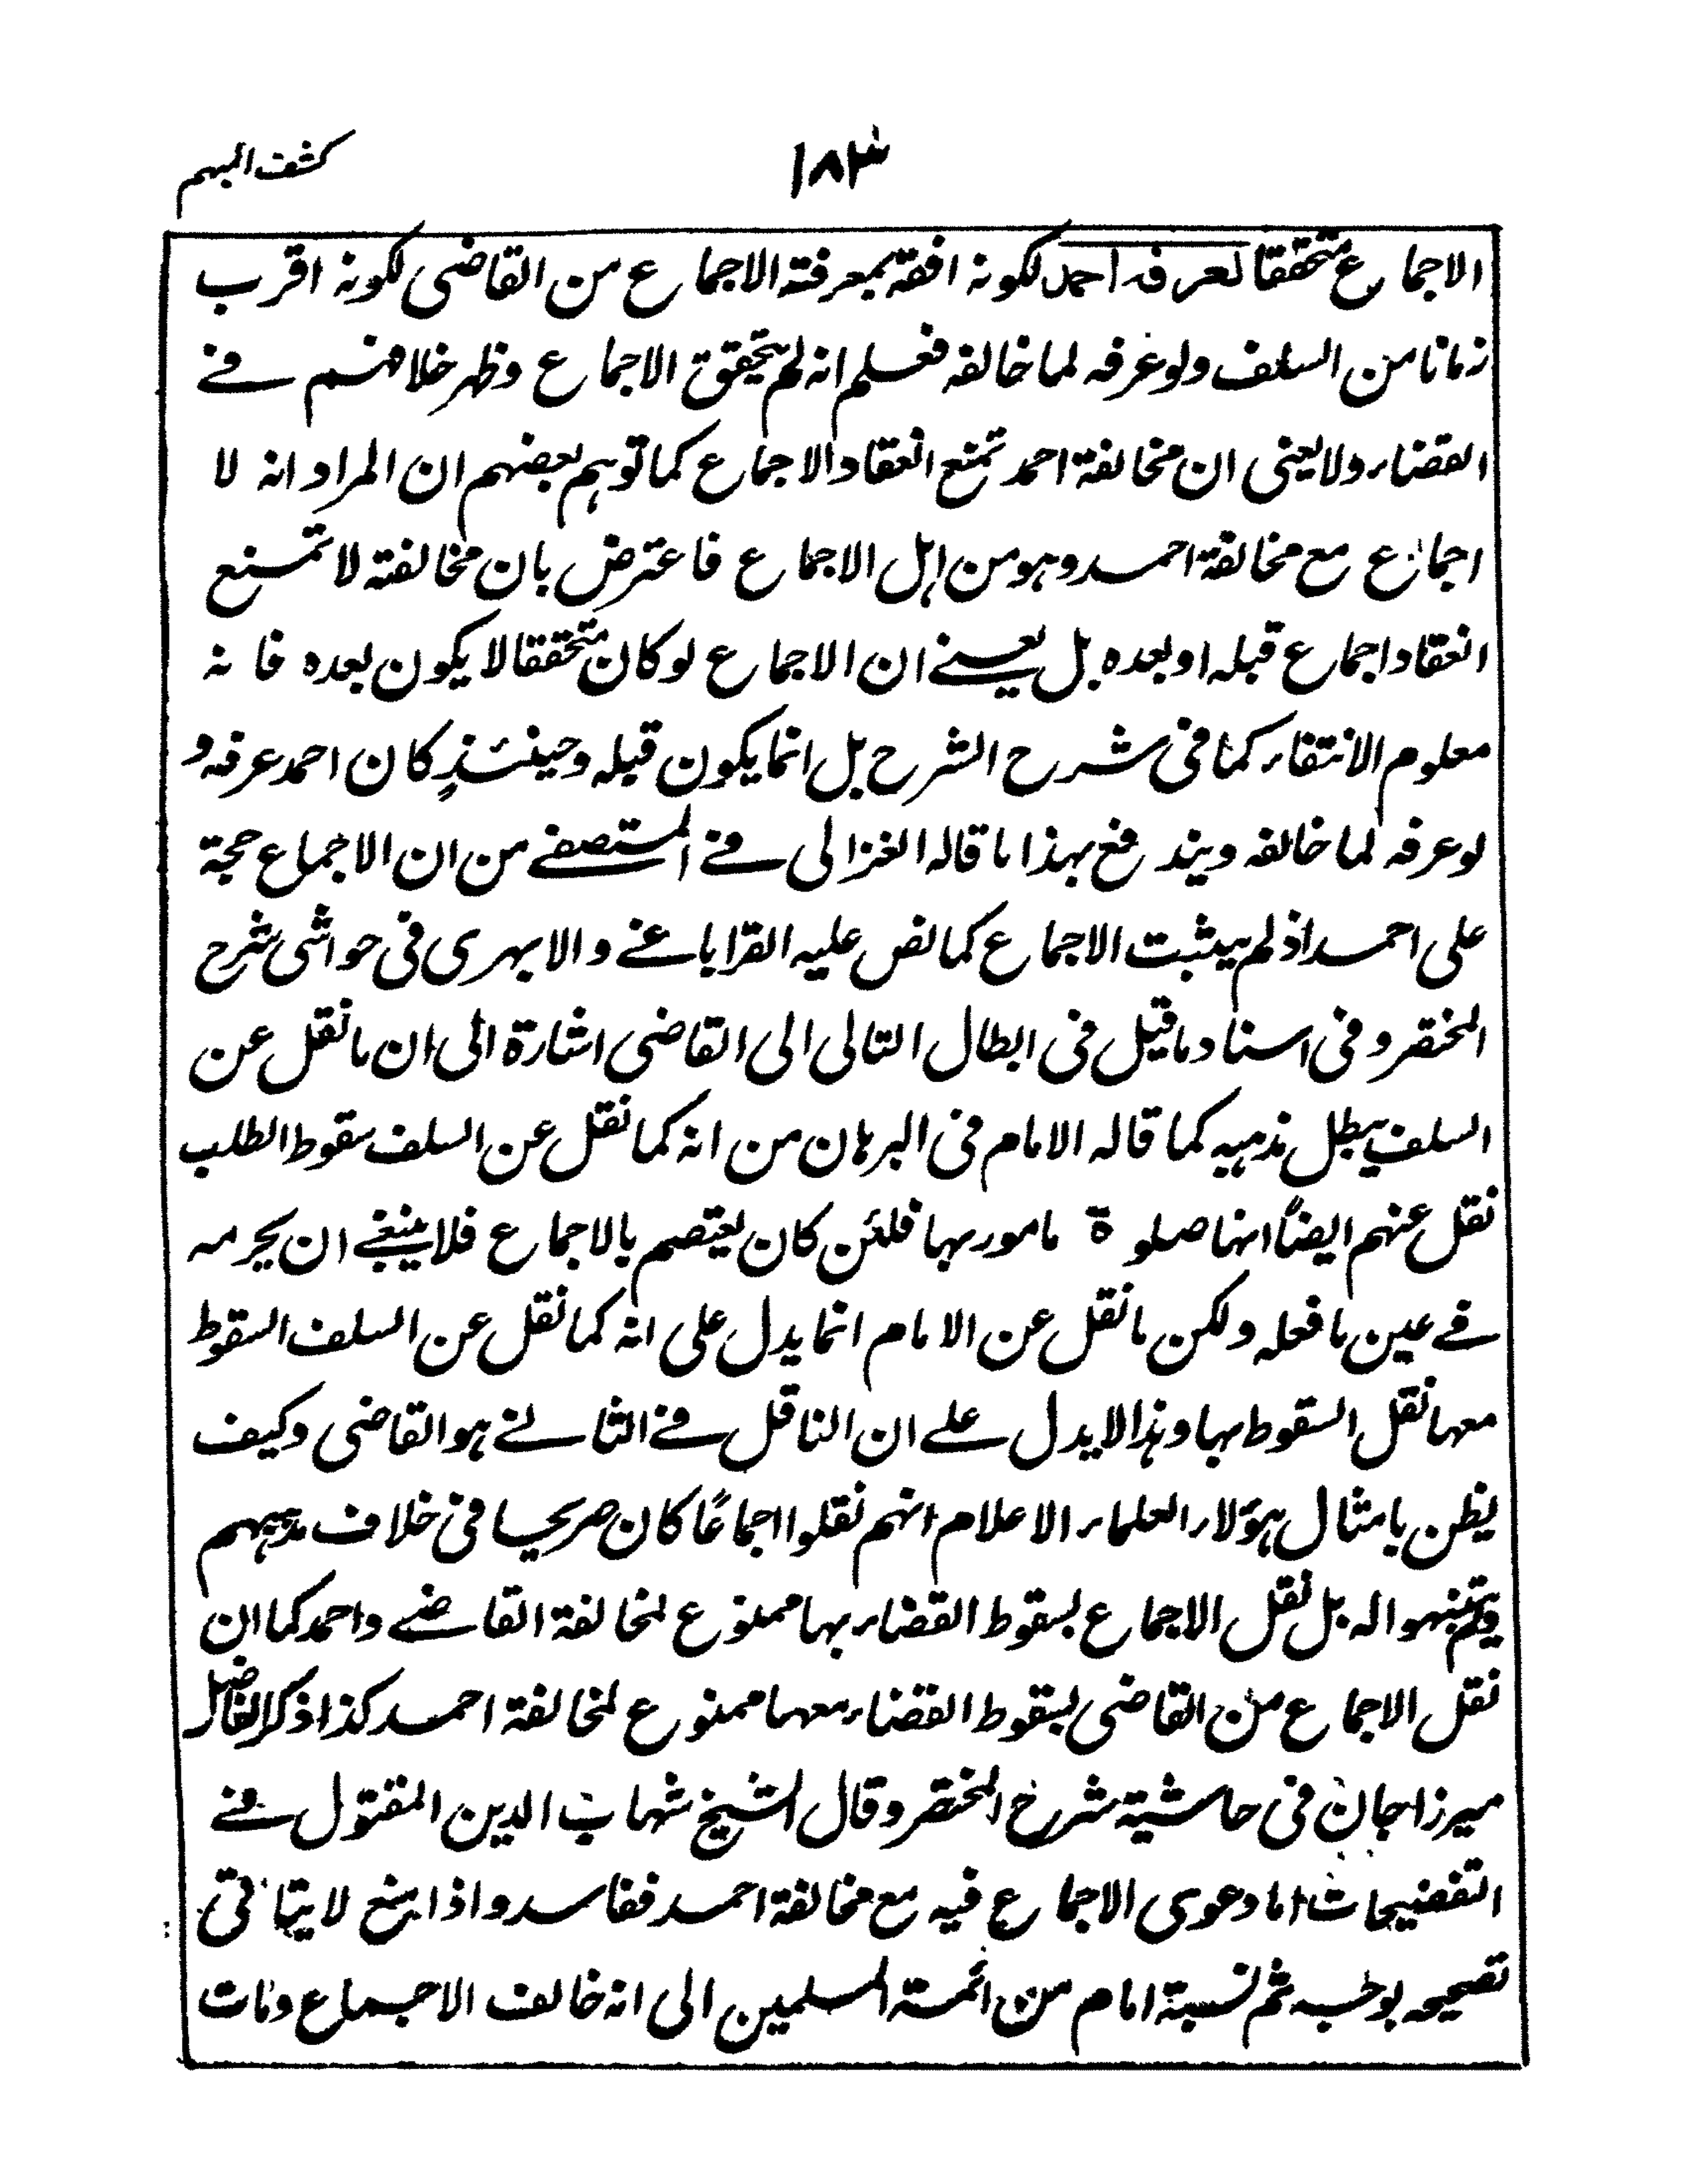 كشف المبهم
١٨٣
الاجماع متحققا لعرفه احمد لكونه افقه بمعرفة الاجماع من القاضى لكونه اقرب
زمانا من السلف ولو عرفه لما خالفه فعلم انه لم يتحقق الاجماع وظهر خلافهم فے
القضاء ولا يعنى ان مخالفة احمد تمنع انعقاد الاجماع كما توهم بعضهم ان المراد انه لا
اجماع مع مخالفة احمد وهو من اهل الاجماع فاعترض بان مخالفته لا تمنع
انعقاد اجماع قبله او بعده بل يعنے ان الاجماع لو كان متحققا لا يكون بعده فانه
معلوم الانتفاء كما فى شرح الشرح بل انما يكون قبله وحينئذٍ كان احمد عرفه و
لو عرفه لما خالفه ويندفع بهذا ما قاله الغزالى فے المستصفے من ان الاجماع حجة
على احمد اذ لم يثبت الاجماع كما نص عليه القراباغے والابهرى فى حواشى شرح
المختصر وفى اسناد ما قيل فى ابطال التالى الى القاضى اشارة الى ان ما نقل عن
السلف يبطل مذهبه كما قاله الامام فى البرهان من انه كما نقل عن السلف سقوط الطلب
نقل عنهم ايضًا انها صلوة مامور بها فلئن كان يعتصم بالاجماع فلا ينبغے ان يحرمه
فے عين ما فعله ولكن ما نقل عن الامام انما يدل على انه كما نقل عن السلف السقوط
معها نقل السقوط بها وهذا لا يدل علے ان الناقل فے الثانے هو القاضى وكيف
يظن بامثال هؤلاء العلماء الاعلام انهم نقلوا اجماعًا كان صريحا فى خلاف مذهبهم
ولم يتنبهوا له بل نقل الاجماع لسقوط القضاء بها ممنوع لمخالفة القاضے واحمد كما ان
نقل الاجماع من القاضى بسقوط القضاء معها ممنوع لمخالفة احمد كذا ذكر الفاضل
ميرزا جان فى حاشية شرح المختصر وقال الشيخ شهاب الدين المقتول فے
التنقيحات اما دعوى الاجماع فيه مع مخالفة احمد ففاسد و اذا منع لا يتاتى
تصحيحه بوجه ثم نسبة امام من ائمة المسلمين الى انه خالف الاجماع ومات